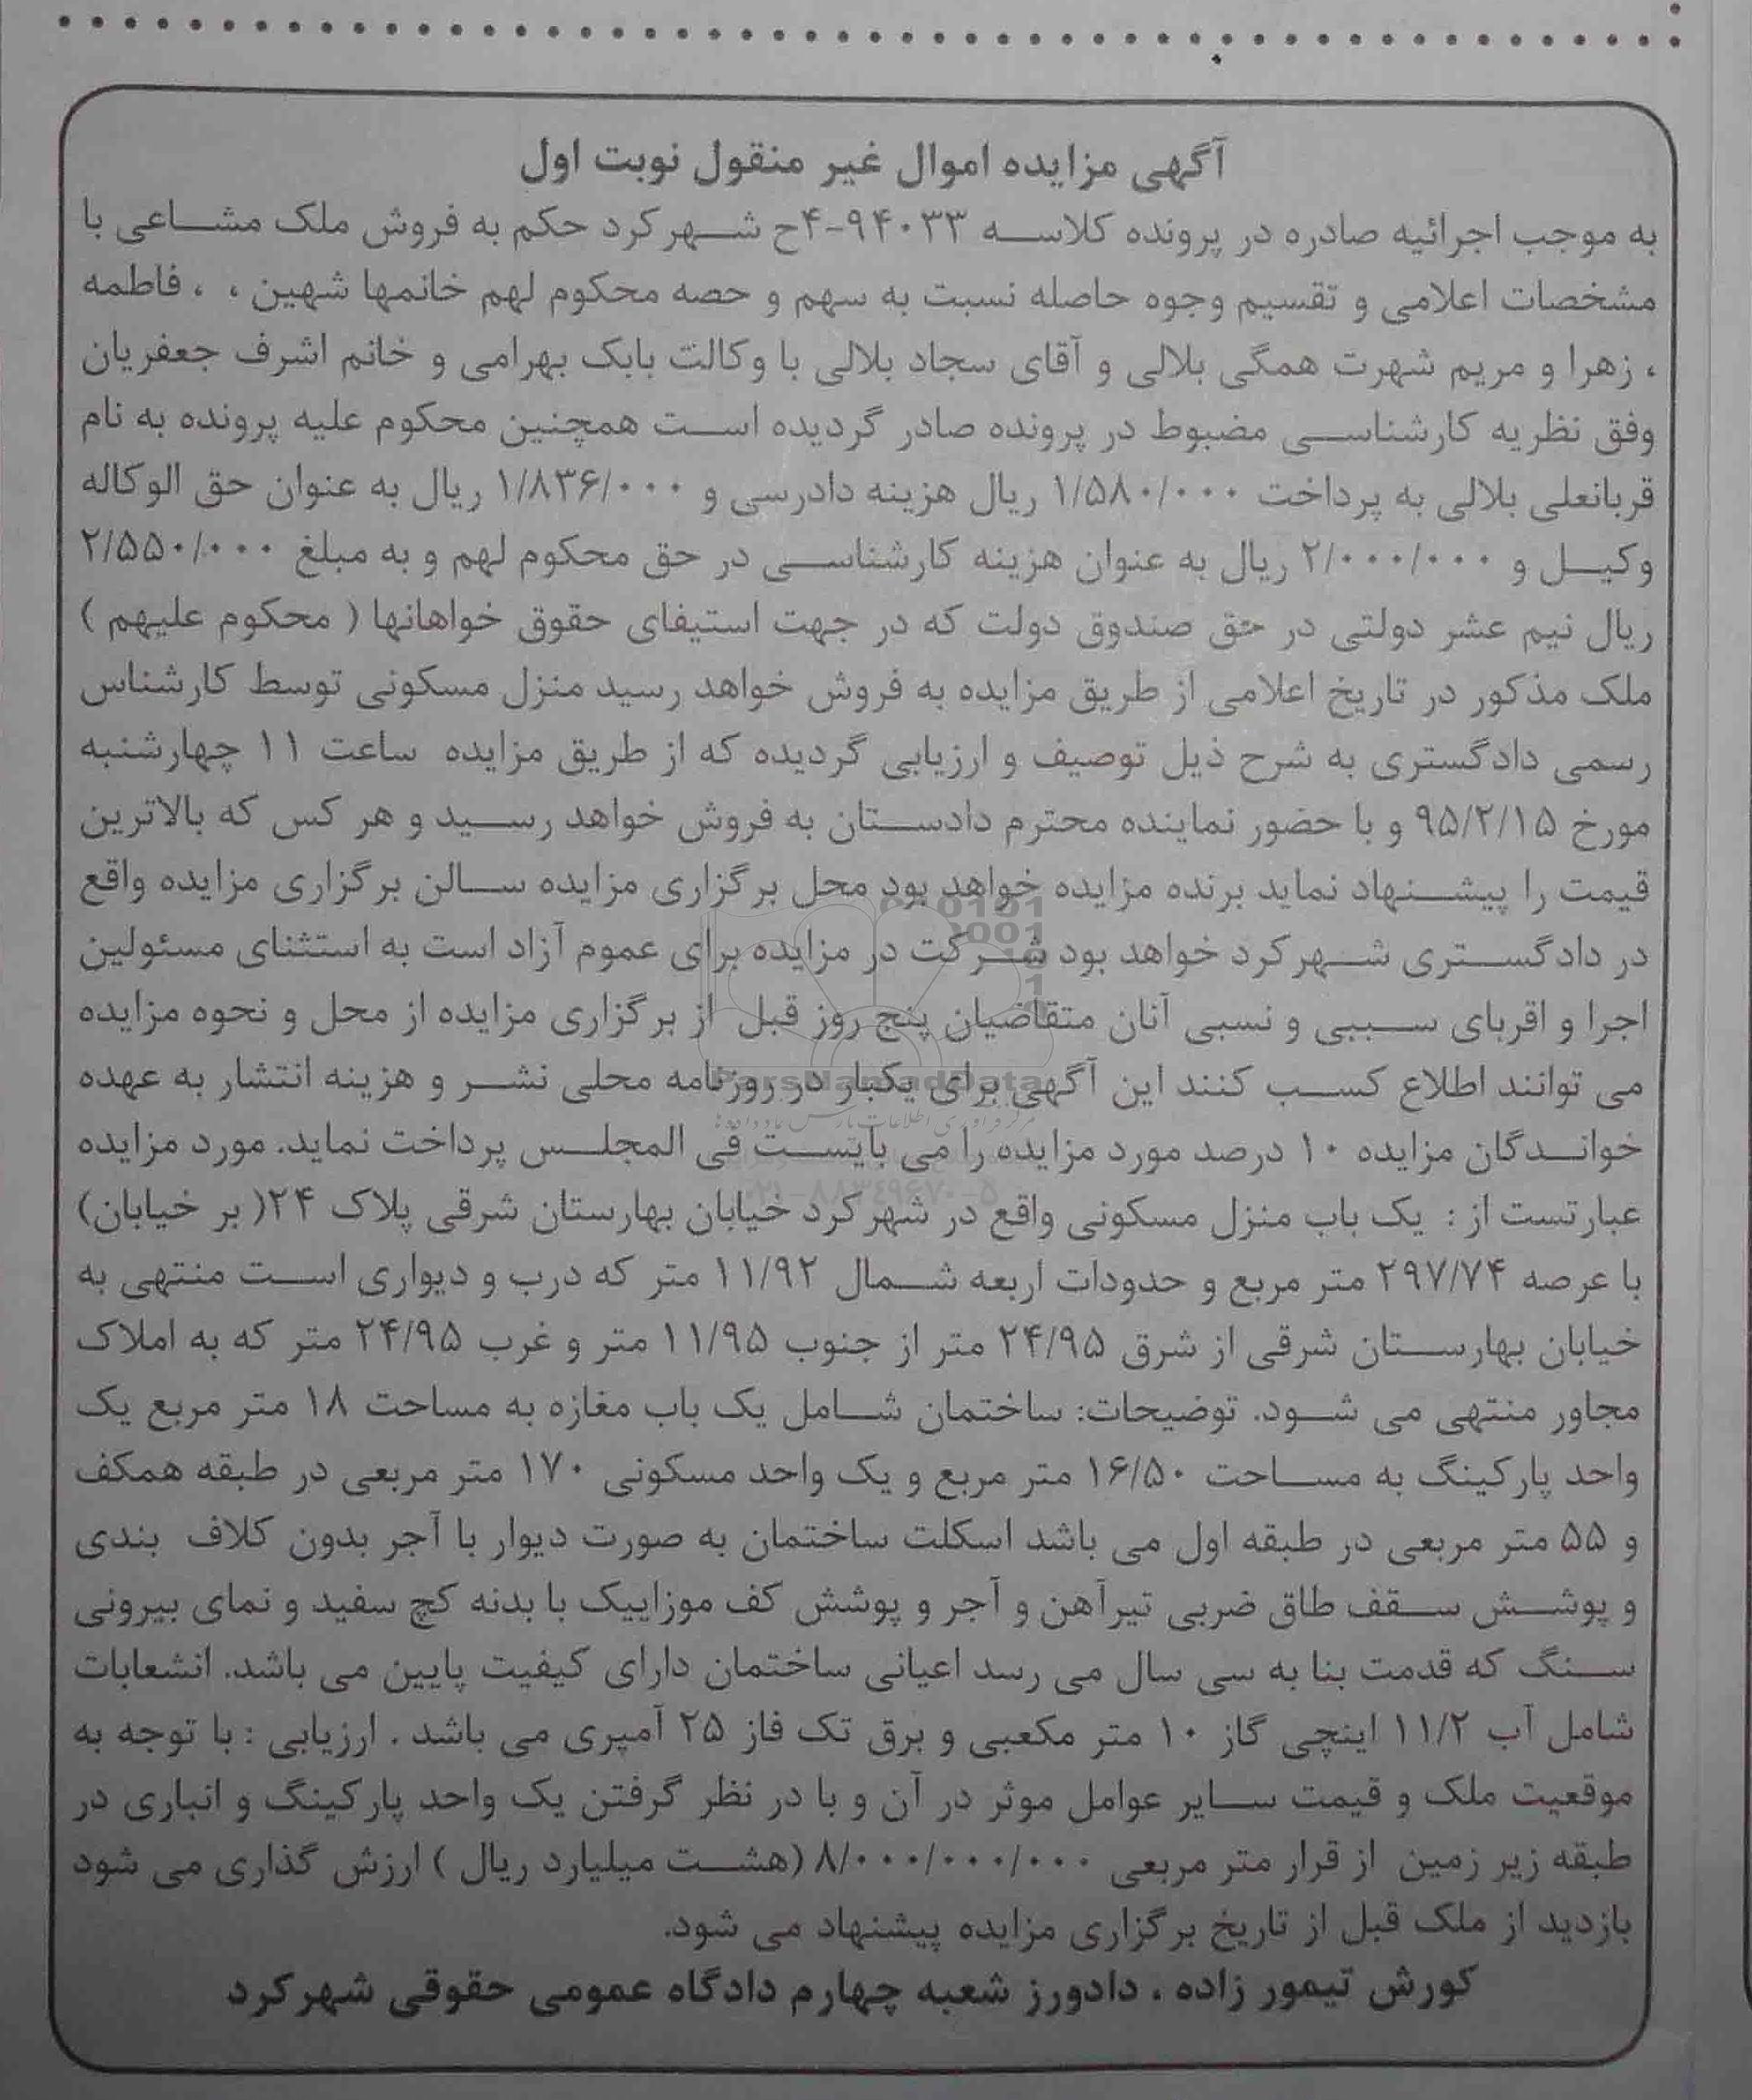 آگهی مزایده اموال غیر منقول نوبت اول
به موجب اجرائیه صادره در پرونده کلاسه ۹۴۰۳۳-۴ح شهرکرد حکم به فروش ملک مشاعی با
مشخصات اعلامی و تقسیم وجوه حاصله نسبت به سهم و حصه محکوم لهم خانمها شهین ، ، فاطمه
، زهرا و مریم شهرت همگی بلالی و آقای سجاد بلالی با وکالت بابک بهرامی و خانم اشرف جعفریان
وفق نظریه کارشناسی مضبوط در پرونده صادر گردیده است همچنین محکوم علیه پرونده به نام
قربانعلی بلالی به پرداخت ۱/۵۸۰/۰۰۰ ریال هزینه دادرسی و ۱/۸۳۶/۰۰۰ ریال به عنوان حق الوکاله
وکیل و ۲/۰۰۰/۰۰۰ ریال به عنوان هزینه کارشناسی در حق محکوم لهم و به مبلغ ۲/۵۵۰/۰۰۰
ریال نیم عشر دولتی در حق صندوق دولت که در جهت استیفای حقوق خواهانها ( محکوم علیهم )
ملک مذکور در تاریخ اعلامی از طریق مزایده به فروش خواهد رسید منزل مسکونی توسط کارشناس
رسمی دادگستری به شرح ذیل توصیف و ارزیابی گردیده که از طریق مزایده ساعت ۱۱ چهارشنبه
مورخ ۹۵/۲/۱۵ و با حضور نماینده محترم دادستان به فروش خواهد رسید و هر کس که بالاترین
قیمت را پیشنهاد نماید برنده مزایده خواهد بود محل برگزاری مزایده سالن برگزاری مزایده واقع
در دادگستری شهرکرد خواهد بود شرکت در مزایده برای عموم آزاد است به استثنای مسئولین
اجرا و اقربای سببی و نسبی آنان متقاضیان پنج روز قبل از برگزاری مزایده از محل و نحوه مزایده
می توانند اطلاع کسب کنند این آگهی برای یکبار در روزنامه محلی نشر و هزینه انتشار به عهده
خواندگان مزایده ۱۰ درصد مورد مزایده را می بایست فی المجلس پرداخت نماید. مورد مزایده
عبارتست از : یک باب منزل مسکونی واقع در شهرکرد خیابان بهارستان شرقی پلاک ۲۴( بر خیابان)
با عرصه ۲۹۷/۷۴ متر مربع و حدودات اربعه شمال ۱۱/۹۲ متر که درب و دیواری است منتهی به
خیابان بهارستان شرقی از شرق ۲۴/۹۵ متر از جنوب ۱۱/۹۵ متر و غرب ۲۴/۹۵ متر که به املاک
مجاور منتهی می شود. توضیحات: ساختمان شامل یک باب مغازه به مساحت ۱۸ متر مربع یک
واحد پارکینگ به مساحت ۱۶/۵۰ متر مربع و یک واحد مسکونی ۱۷۰ متر مربعی در طبقه همکف
و ۵۵ متر مربعی در طبقه اول می باشد اسکلت ساختمان به صورت دیوار با آجر بدون کلاف بندی
و پوشش سقف طاق ضربی تیرآهن و آجر و پوشش کف موزاییک با بدنه کچ سفید و نمای بیرونی
سنگ که قدمت بنا به سی سال می رسد اعیانی ساختمان دارای کیفیت پایین می باشد. انشعابات
شامل آب ۱۱/۲ اینچی گاز ۱۰ متر مکعبی و برق تک فاز ۲۵ آمپری می باشد . ارزیابی : با توجه به
موقعیت ملک و قیمت سایر عوامل موثر در آن و با در نظر گرفتن یک واحد پارکینگ و انباری در
طبقه زیر زمین از قرار متر مربعی ۸/۰۰۰/۰۰۰/۰۰۰ (هشت میلیارد ریال ) ارزش گذاری می شود
بازدید از ملک قبل از تاریخ برگزاری مزایده پیشنهاد می شود.
کورش تیمور زاده ، دادورز شعبه چهارم دادگاه عمومی حقوقی شهرکرد
ParsNamadData
۰۲۱-۸۸۳۴۹۶۷۰-۵